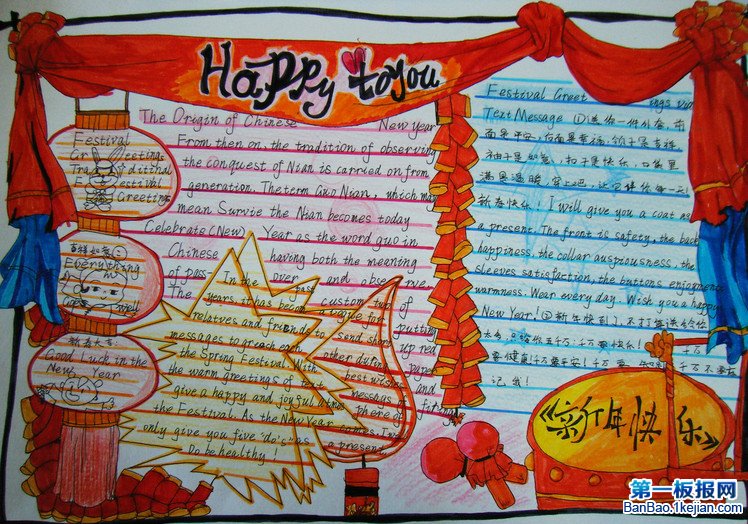 Happy to you
The Origin of Chinese New year
From then on, the tradition of observing
the conquest of Nian is carried on from
generation. The term Guo Nian, which may
mean Survie the Nian becomes today
Celebrate (New) Year as the word guo in
Chinese having both the meaning
of pass over and observe.
The
In the past
years, it has become a custom
relatives and friends to send short
messages to greet each other during
the Spring Festival. With best wishes
the warm greetings of
give a happy and joyful
the Festival. As the New Year comes, I've
only give you five "do's" as a present.
Do be healthy!
of
putting
up red
paper
and
Festival
Greetings
Traditional
Festival
Greeting
百事如意:
Everything
Goes well
新春大吉:
Good Luck in the
New Year
Festival Greetings via
Text Message ①送你一件外套,前
面是平安,后面是幸福,领子是吉祥
袖子是如意,扣子是快乐,口袋里
满是温暖,穿上吧,让它伴你每一天!
新春快乐! I will give you a coat as
a present. The front is safety, the back
happiness, the collar auspiciousness, the
sleeves satisfaction, the buttons enjoyment
warmness. Wear every day. Wish you a happy
New Year! ②新年快到了,不打算送给你
太多,只给你五千万:千万要快乐!千万
要健康!千万要平安!千万要千万不要忘
记我!
《新年快乐》
第一板报网
BanBao.1kejian.com